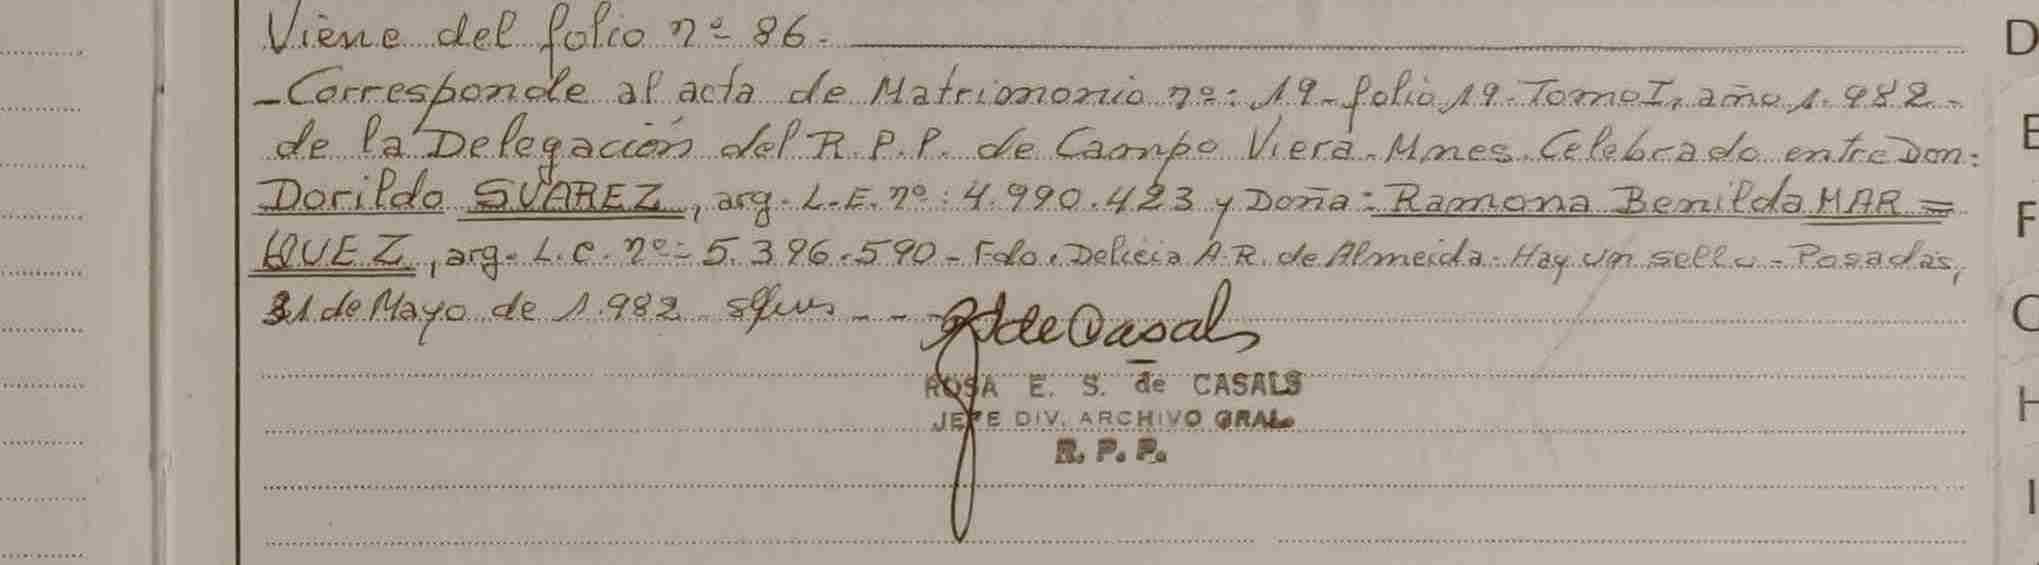 Viene del folio nº 86.
- Corresponde al acta de Matrimonio nº: 19 - folio 19 - Tomo I, año 1.982 -
de la Delegación del R.P.P. de Campo Viera. Mnes. Celebrado entre Don:
Dorildo SUAREZ, arg. L.E. nº: 4.990.423 y Doña: Ramona Benilda MAR=
QUEZ, arg. L.C. nº: 5.396.590 - Fdo. Delicia A.R. de Almeida - Hay un sello - Posadas,
31 de Mayo de 1.982 - - -
de Casals
ROSA E. S. de CASALS
JEFE DIV. ARCHIVO GRAL.
R. P. P.
D
E
F
G
H
I